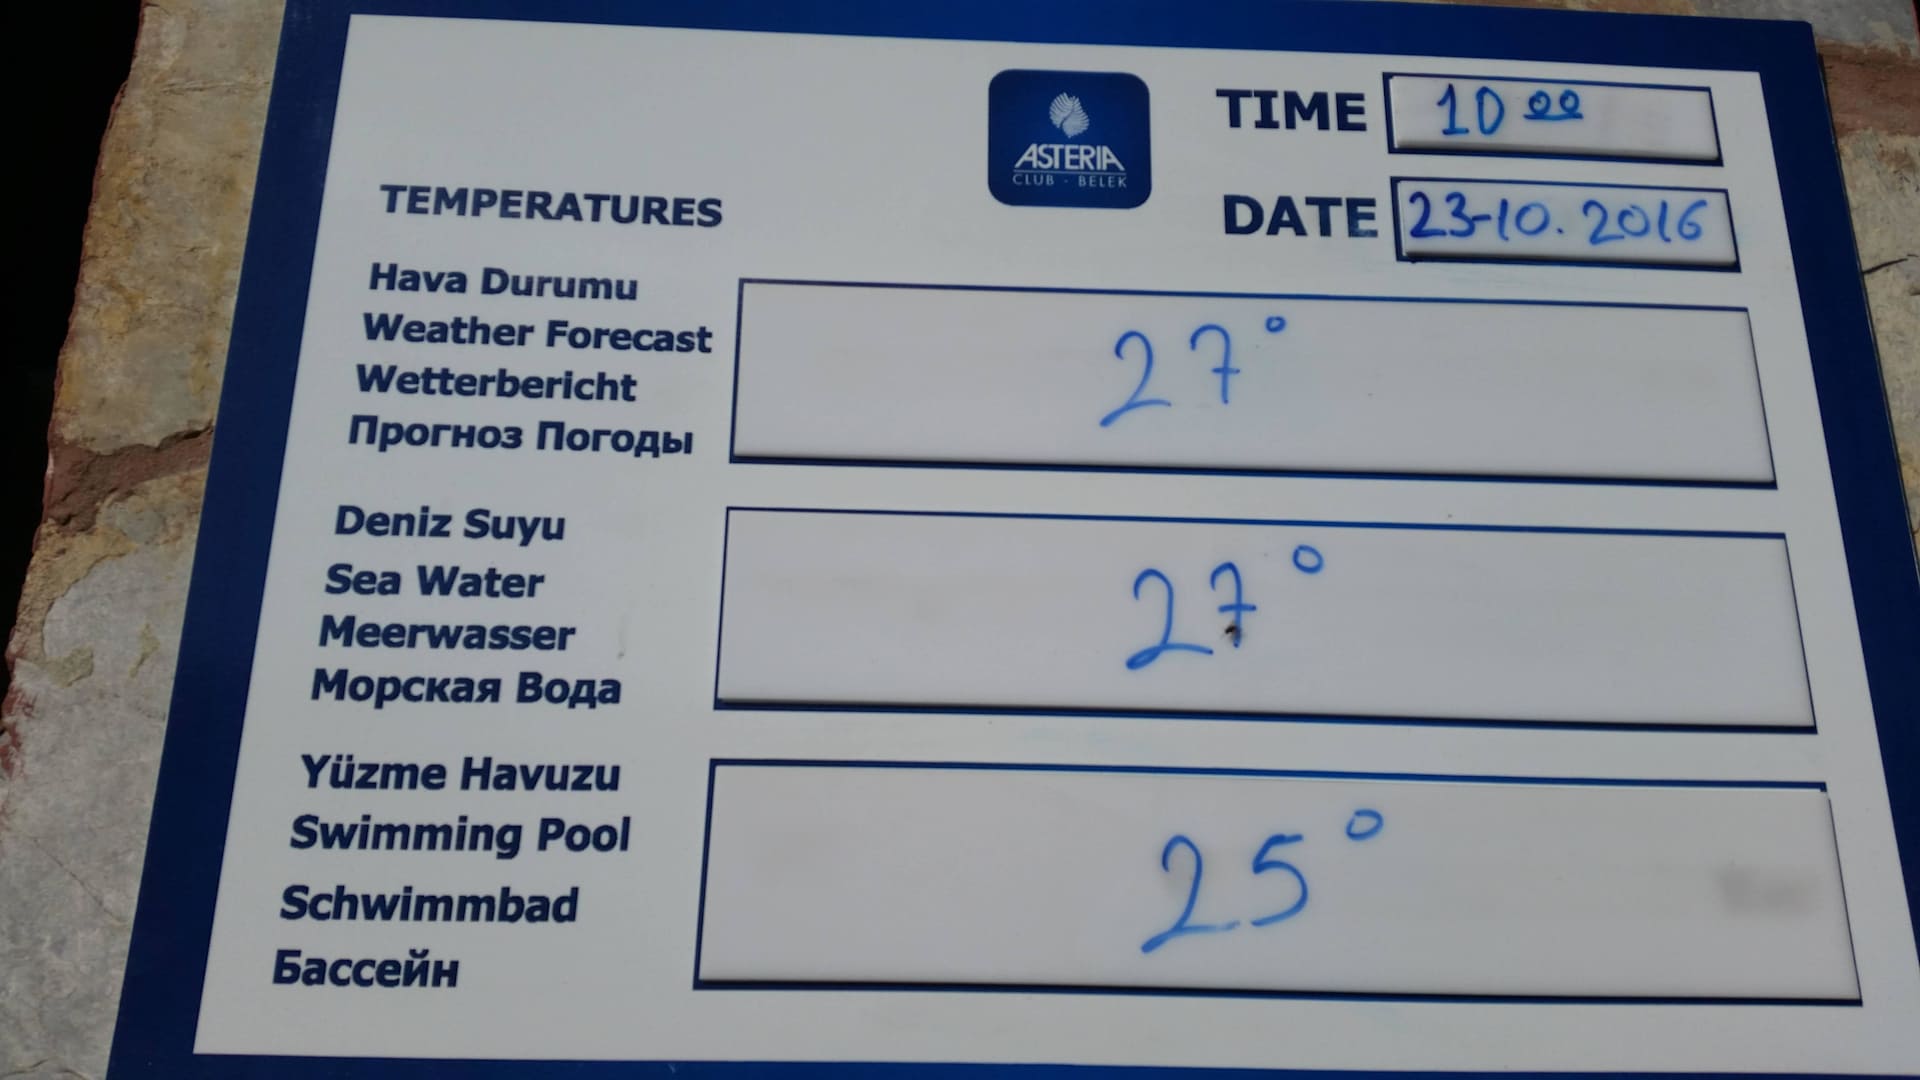 TIME 10 00
ASTERIA
CLUB - BELEK
DATE 23-10.2016
TEMPERATURES
Hava Durumu
Weather Forecast
Wetterbericht
Прогноз Погоды
27°
Deniz Suyu
Sea Water
Meerwasser
Морская Вода
27°
Yüzme Havuzu
Swimming Pool
Schwimmbad
Бассейн
25°